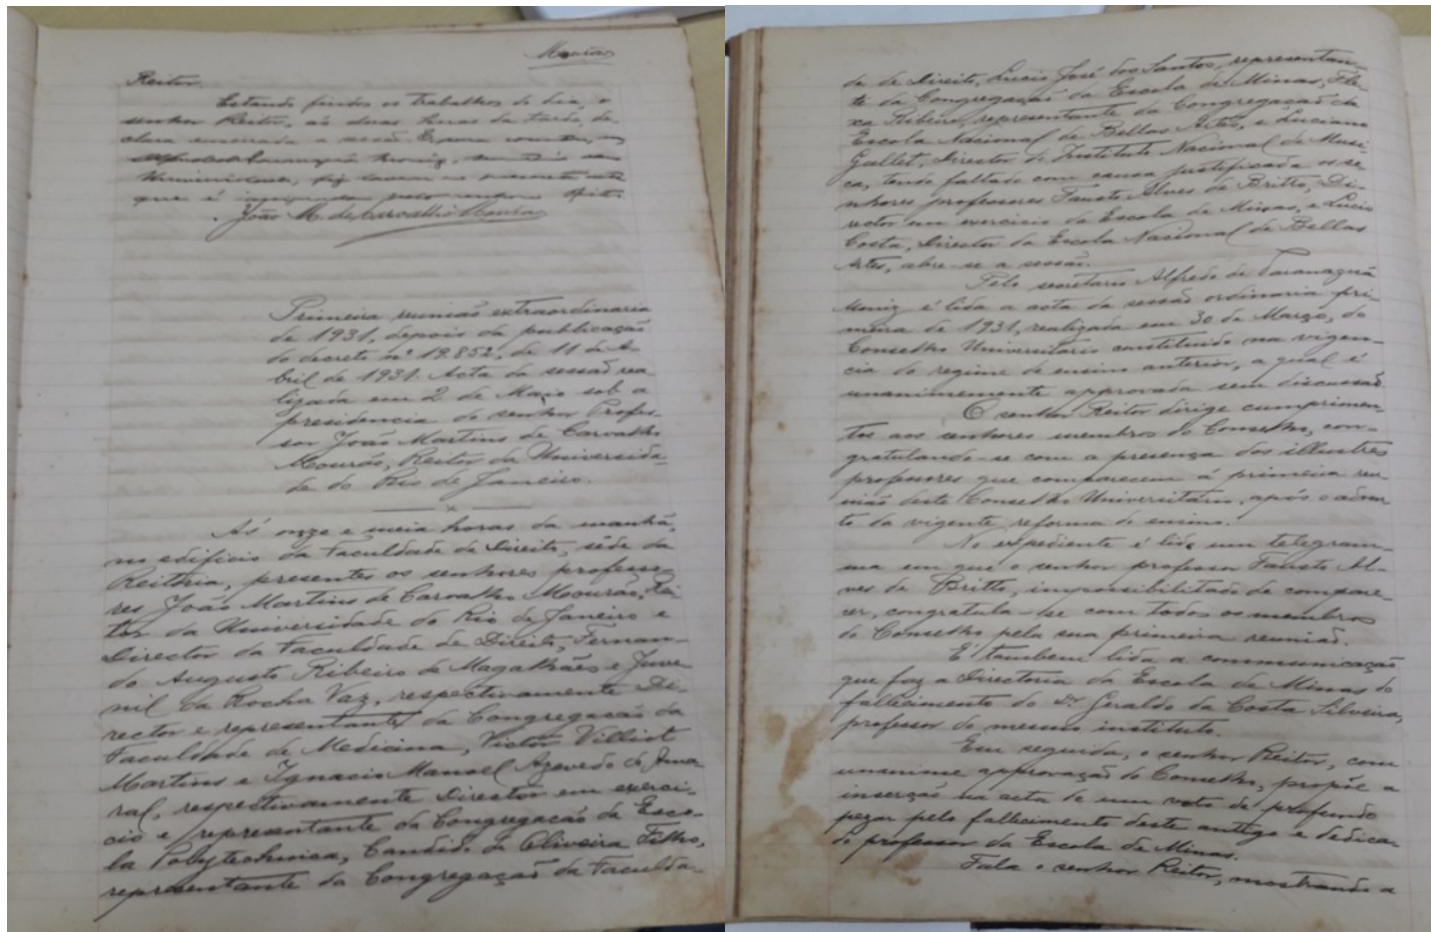 Mourão
Reitor.
Estando findos os trabalhos do dia, o
senhor Reitor, ás duas horas da tarde, de-
clara encerrada a sessão. E para constar, eu
Alfredo de Paranaguá Moniz,
Universidade, fiz lavrar a presente acta
que é assignada pelo senhor Reitor.
João M. de Carvalho Mourão
Primeira reunião extraordinaria
de 1931, depois da publicação
do decreto nº 19.852, de 11 de A-
bril de 1931. Acta da sessão rea-
lizada em 2 de Maio sob a
presidencia do senhor Profes-
sor João Martins de Carvalho
Mourão, Reitor da Universida-
de do Rio de Janeiro.
Ás onze e meia horas da manhã,
no edificio da Faculdade de Direito, séde da
Reitoria, presentes os senhores professo-
res João Martins de Carvalho Mourão, Rei-
tor da Universidade do Rio de Janeiro e
Director da Faculdade de Direito, Fernan-
do Augusto Ribeiro de Magalhães e Juve-
nil da Rocha Vaz, respectivamente Di-
rector e representante da Congregação da
Faculdade de Medicina, Victor Villiot
Martins e Ignacio Manoel Azevedo do Ama-
ral, respectivamente Director em exerci-
cio e representante da Congregação da Esco-
la Polytechnica, Candido de Oliveira Filho,
representante da Congregação da Faculda-
de de Direito, Lucio José dos Santos, representan-
te da Congregação da Escola de Minas, Fle-
xa Ribeiro, representante da Congregação da
Escola Nacional de Bellas Artes, e Luciano
Gallet, Director do Instituto Nacional de Musi-
ca, tendo faltado com causa justificada os se-
nhores professores Fausto Alves de Britto, Di-
rector em exercicio da Escola de Minas, e Lucio
Costa, Director da Escola Nacional de Bellas
Artes, abre-se a sessão.
Pelo secretario Alfredo de Paranaguá
Moniz é lida a acta da sessão ordinaria pri-
meira de 1931, realizada em 30 de Março, do
Conselho Universitario constituido na vigen-
cia do regime de ensino anterior, a qual é
unanimemente approvada sem discussão.
O senhor Reitor dirige cumprimen-
tos aos senhores membros do Conselho, con-
gratulando-se com a presença dos illustres
professores que comparecem á primeira reu-
nião deste Conselho Universitario, após o adven-
to da vigente reforma do ensino.
No expediente é lido um telegram-
ma em que o senhor professor Fausto Al-
ves de Britto, impossibilitado de compare-
cer, congratula-se com todos os membros
do Conselho pela sua primeira reunião.
É tambem lida a communicação
que faz a Directoria da Escola de Minas do
fallecimento do Dr. Geraldo da Costa Silveira,
professor do mesmo instituto.
Em seguida, o senhor Reitor, com
unanime approvação do Conselho, propõe a
inserção na acta de um voto de profundo
pezar pelo fallecimento deste antigo e dedica-
do professor da Escola de Minas.
Fala o senhor Reitor, mostrando a